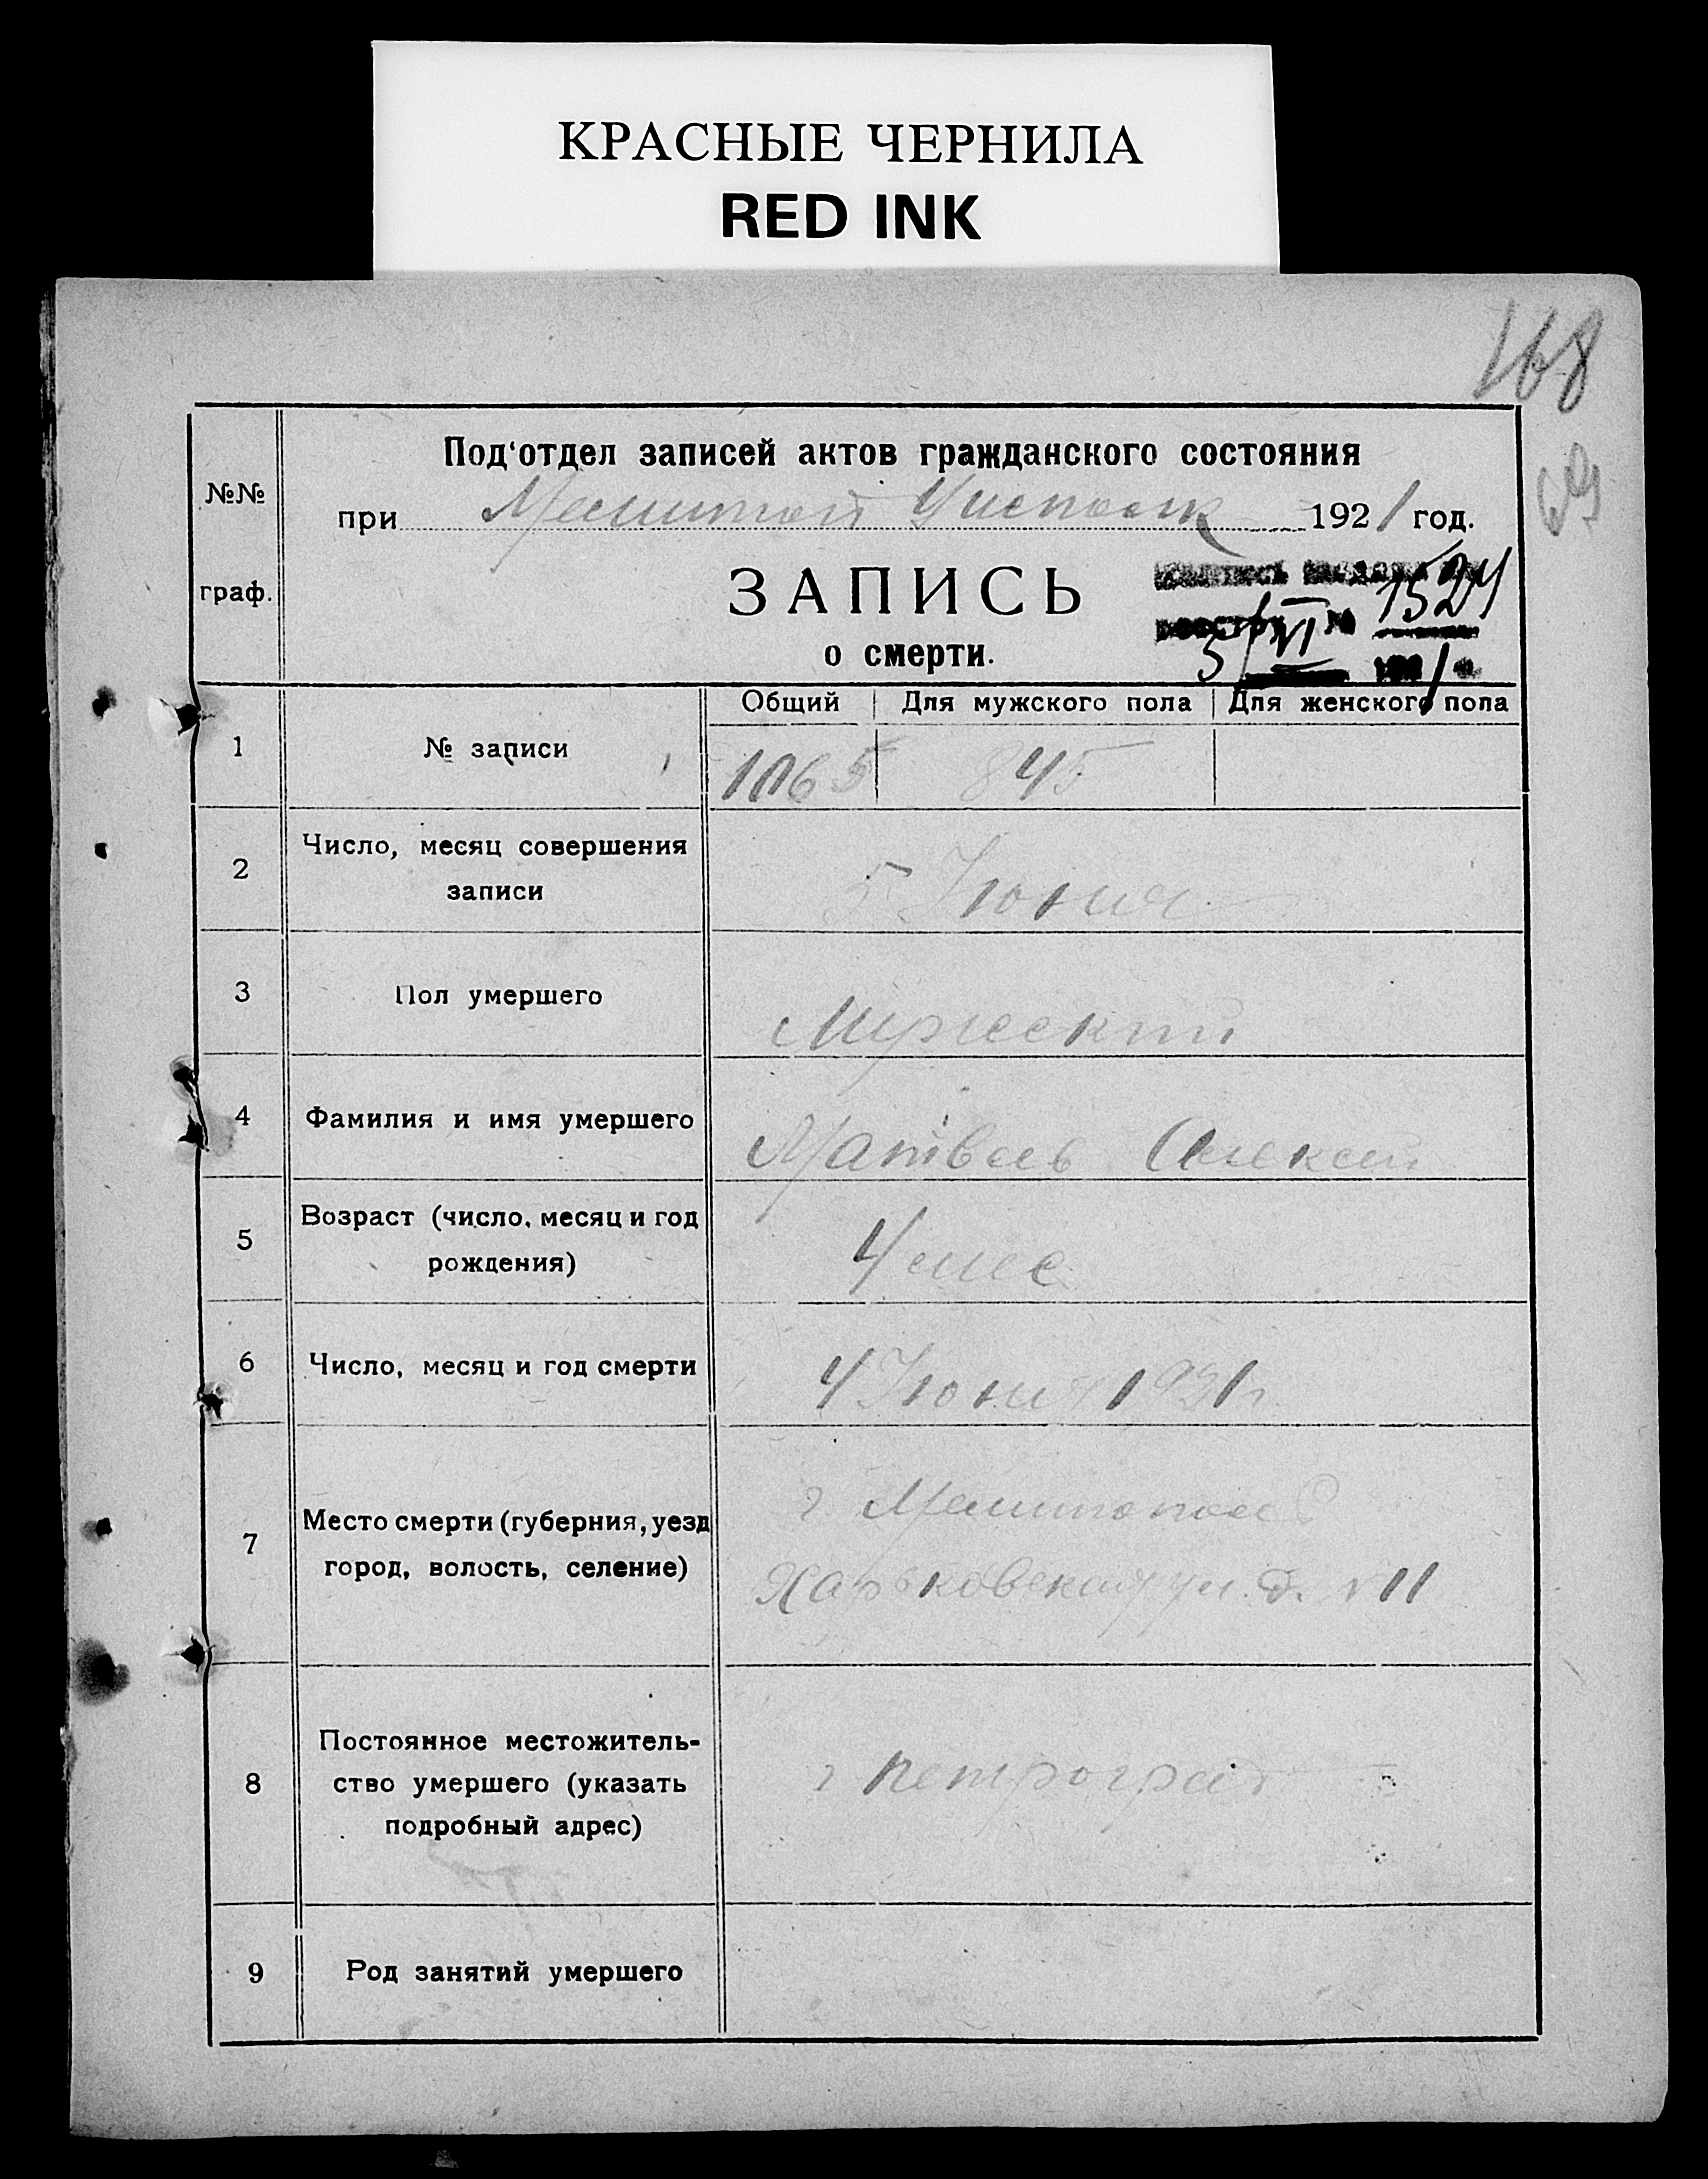 КРАСНЫЕ ЧЕРНИЛА
RED INK
168
69
№№ граф.
Под'отдел записей актов гражданского состояния
при Мелитоп Уисполк 1921 год.
ЗАПИСЬ
о смерти.
№ 1524
5/VI 1921
Общий Для мужского пола Для женского пола
1 № записи 1065 845
2 Число, месяц совершения
записи
5 Июня
3 Пол умершего Мужский
4 Фамилия и имя умершего Матвеев Алексей
5 Возраст (число, месяц и год
рождения)
4 мес
6 Число, месяц и год смерти 4 Июня 1921 г.
7 Место смерти (губерния, уезд
город, волость, селение)
г. Мелитополь
Харьковская ул. д. 11
8 Постоянное местожитель-
ство умершего (указать
подробный адрес)
г Петроград
9 Род занятий умершего